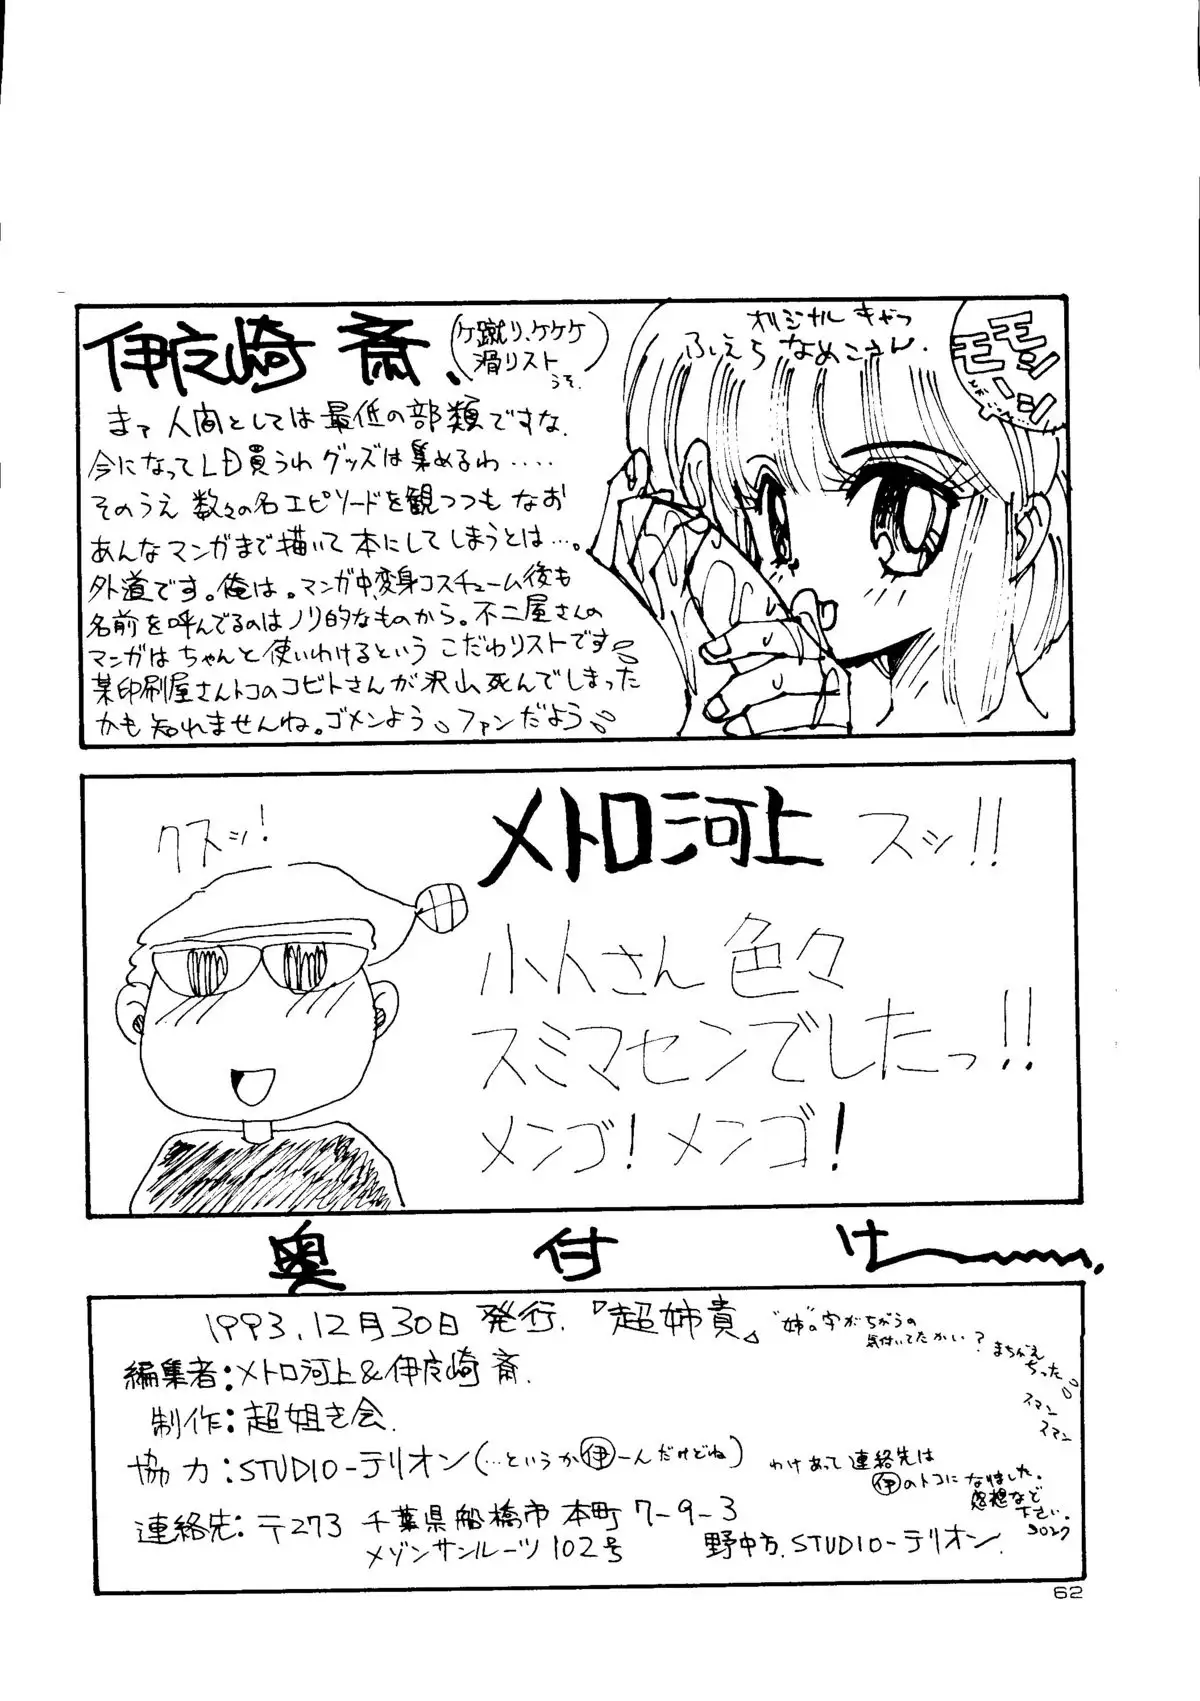 伊皮崎 斎.
(ケ蹴り、ケケケ
滑リスト
うそ.)
まァ人間としては最低の部類ですな.
今になってLD買うわグッズは集めるわ・・・・
そのうえ数々の名エピソードを観つつもなお
あんなマンガまで描いて本にしてしまうとは・・・。
外道です。俺は。マンガ中、変身コスチューム後も
名前を呼んでるのはノリ的なものから。不二屋さんの
マンガはちゃんと使いわけるというこだわリストです
某印刷屋さんトコのコビトさんが沢山死んでしまった
かも知れませんね。ゴメンよう ファンだよう
オリジナルきゃっ
ふぇちなめこさん.
モモンモーン
クスッ!
メトロ河上 スッ!!
小人さん色々
スミマセンでしたっ!!
メンゴ! メンゴ!
奥付けー
1993.12月30日発行.『超姉貴』
"姉"の字がちがうの
気付いてたかい?
まちがえ
ちった
スマン
スマン
編集者:メトロ河上&伊皮崎 斎.
制作:超姐き会.
協力:STUDIO-テリオン(・・・というか伊一んだけどね)
わけあって連絡先は
伊のトコになりました.
感想など
下さい.
ヨロシク
連絡先:〒273 千葉県船橋市本町7-9-3
メゾンサンルーツ102号 野中方.STUDIO-テリオン.
62